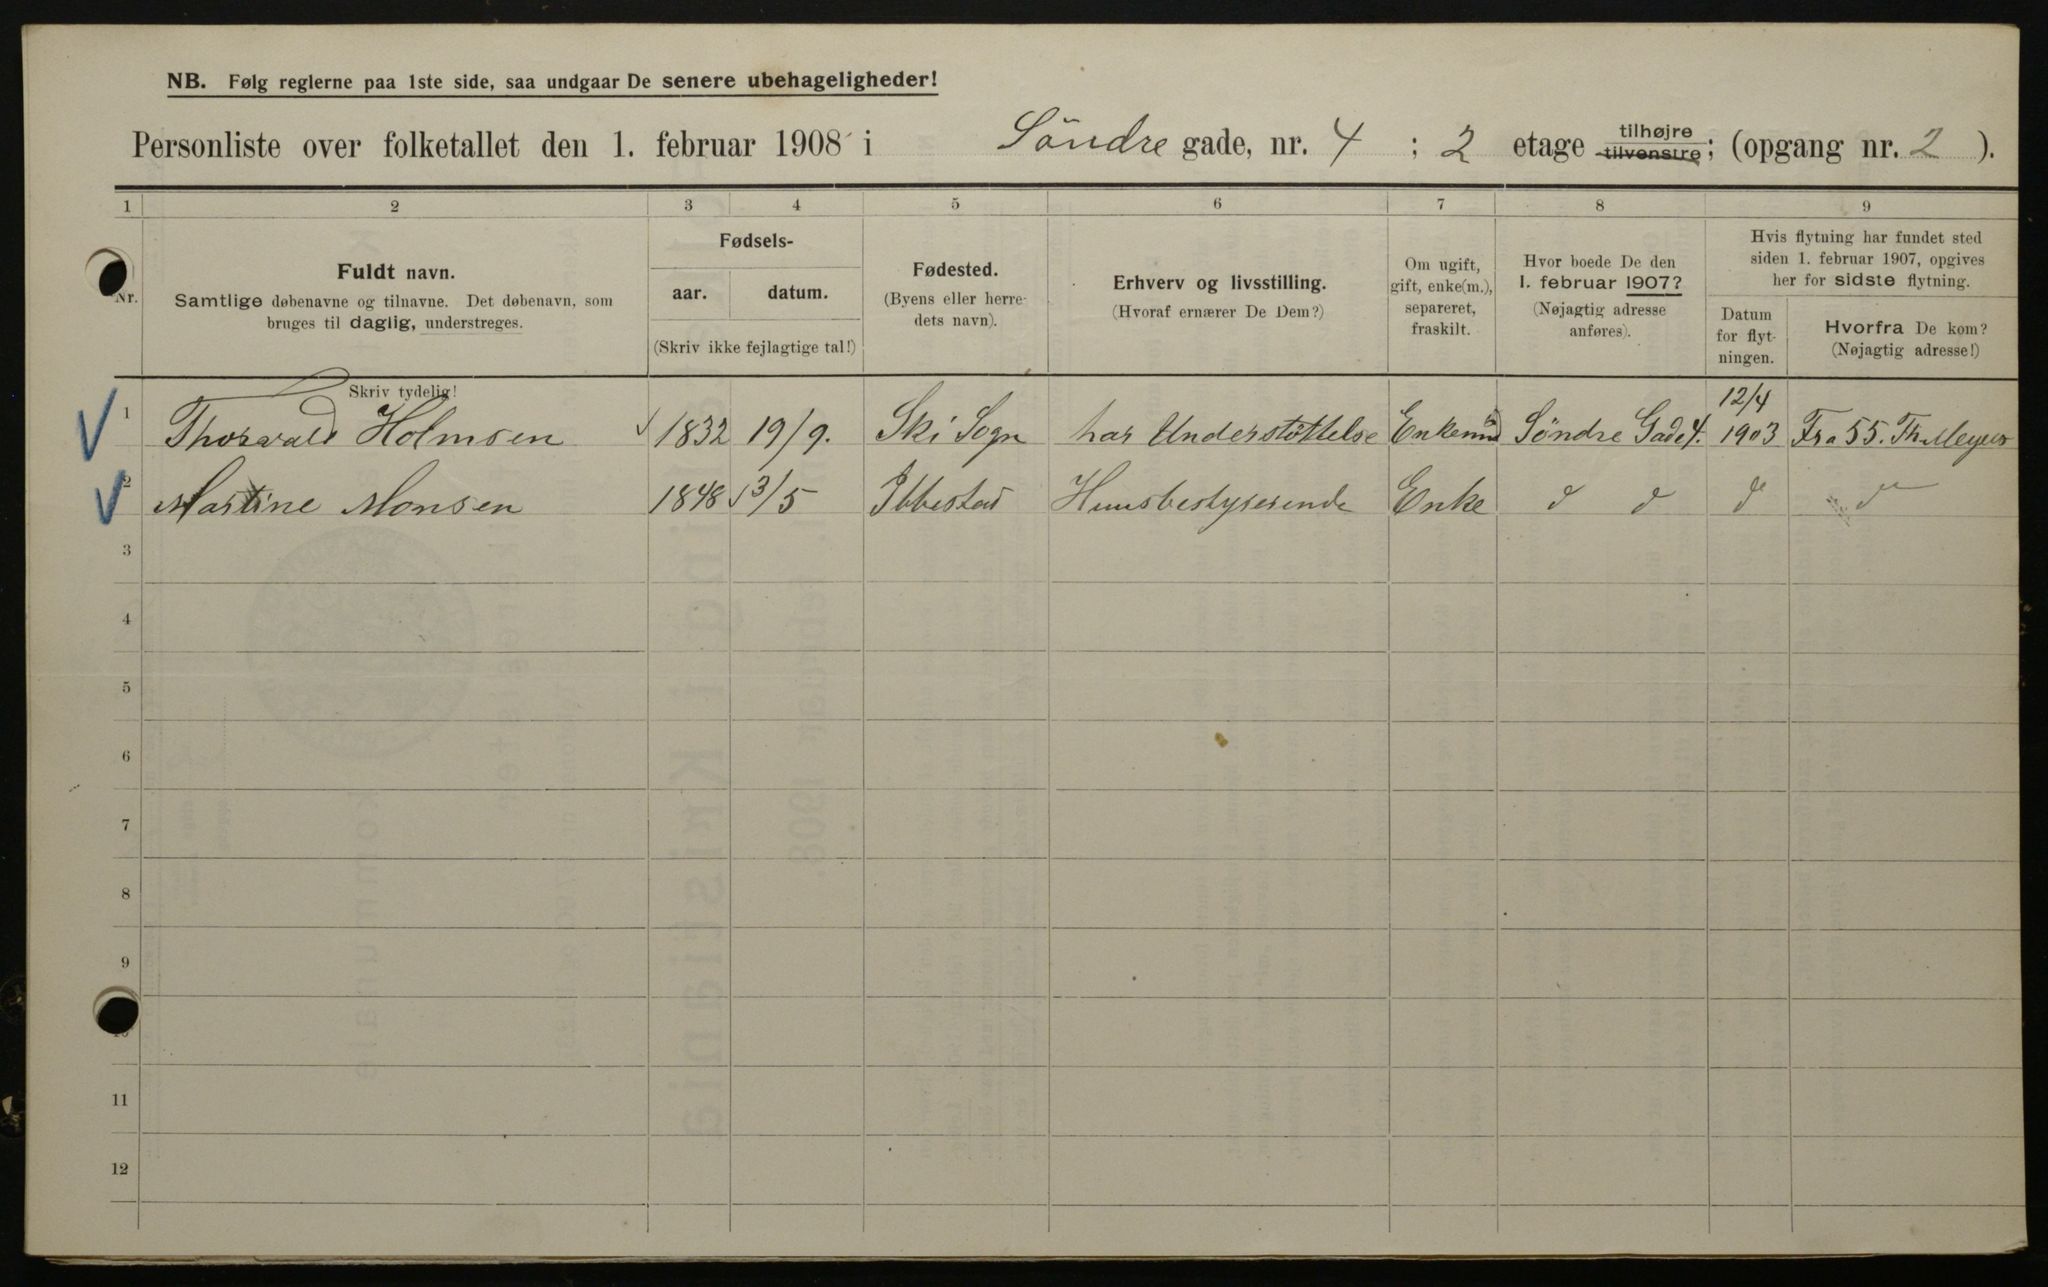 NB. Følg reglerne paa 1ste side, saa undgaar De senere ubehageligheder!
Personliste over folketallet den 1. februar 1908 i Söndre gade, nr. 4 ; 2 etage tilhøjre tilvenstre; (opgang nr. 2 ).
1 2 3 4 5 6 7 8 9
Nr.
Fuldt navn.
Samtlige døbenavne og tilnavne. Det døbenavn, som
bruges til daglig, understreges.
Fødsels-
aar. datum.
(Skriv ikke fejlagtige tal!)
Fødested.
(Byens eller herre-
dets navn).
Erhverv og livsstilling.
(Hvoraf ernærer De Dem?)
Om ugift,
gift, enke(m.),
separeret,
fraskilt.
Hvor boede De den
1. februar 1907?
(Nøjagtig adresse
anføres).
Hvis flytning har fundet sted
siden 1. februar 1907, opgives
her for sidste flytning.
Datum
for flyt-
ningen.
Hvorfra De kom?
(Nøjagtig adresse!)
Skriv tydelig!
12/4
1 Thorvald Holmsen 1832 19/9. Ski Sogn har Understöttelse Enkemd Söndre Gade 4. 1903 Fra 55. Th. Meyers
2 Martine Monsen 1848 3/5 Ibbestad Huusbestyrerende Enke d d d d
3
4
5
6
7
8
9
10
11
12